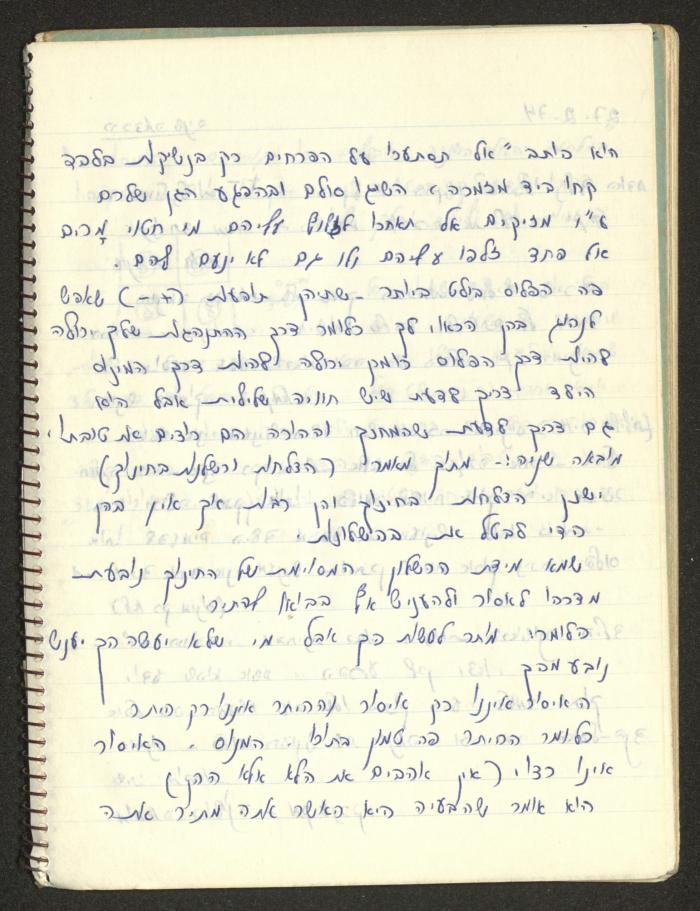 הוא כותב "אל תסתערו על הפרחים רק בנשיקות בלבד
קחו ביד מזמרה, השיגו סולם ובהפגע הגן שלכם
ע"י מזיקים אל תאחרו לזלוף עליהם מי חטוי מָרים
אל פחד זלפו עליהם ולו גם לא ינעם להם.
פה הפלוס בולט ביותר - שתיקן תופעות (-) שאפשר
לנהוג בהן הכאו לך כלומר דרך ההתנהגות שלך יכולה
להיות דרך הפלוס כמובן ויכולה להיות דרך המינוס
הילד צריך לדעת שיש חוויה שלילית אבל הוא
גם צריך לדעת שהמחנך וההורה הם רוצים את טובתו
מובאה שניה :- מתוך מאמר (הצלחות ורשלנות בחינוך)
ישנן הצלחות בחינוך והן רבות אך אין בהן
הידי לבטל את הכשלונות.
שמא מידת הכשלון המסוימת של החינוך נובעת
מדרכו לאסור ולהעניש אף בבואו להתיר
כלומר: מותר לעשות כך אבל מי שלא יעשה כך יענש
נובע מכך
האיסור איננו רק איסור וההיתר איננו רק היתר
כלומר ההיתר פה טמון בתוכו המינוס. האיסור
אינו רצוי (אין אוהבים את הלא אלא ההן)
הוא אומר שהבעיה היא כאשר אתה מתיר אתה